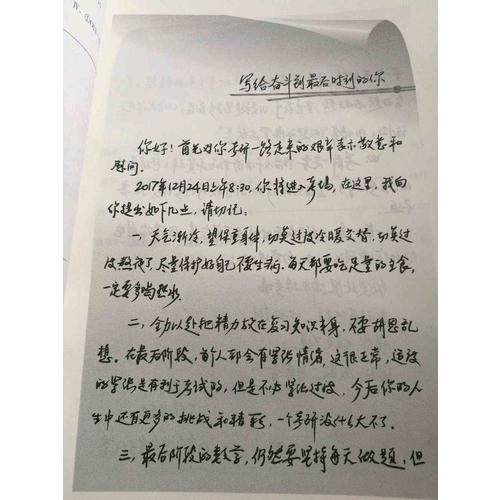 写给奋斗到最后时刻的你
你好！首先对你考研一路走来的艰辛表示敬意和
慰问。
2017年12月24日上午8:30，你将进入考场，在这里，我向
你提出如下几点，请切记：
一、天气渐冷，望保重身体，切莫过度冷暖交替，切莫过
度熬夜了，尽量保护好自己不要生病。每天都要吃足量的主食，
一定要多喝热水。
二，全力以赴把精力放在复习知识本身，不要胡思乱
想。在最后阶段，每个人都会有紧张情绪，这很正常，适度
的紧张是有利于考试的，但是不必紧张过度，今后你的人
生中还有更多的挑战和精彩，一个考研没什么大不了。
三，最后阶段的数学，仍然要坚持每天做题，但